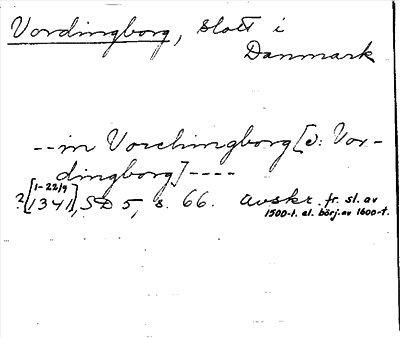 Vordingborg, slott i
Danmark
--in Vorchingborg [ɔ: Vor-
dingborg]----
?[1-22/9 1341], SD 5, s. 66. Avskr. fr. sl. av
1500-t. el. börj. av 1600-t.